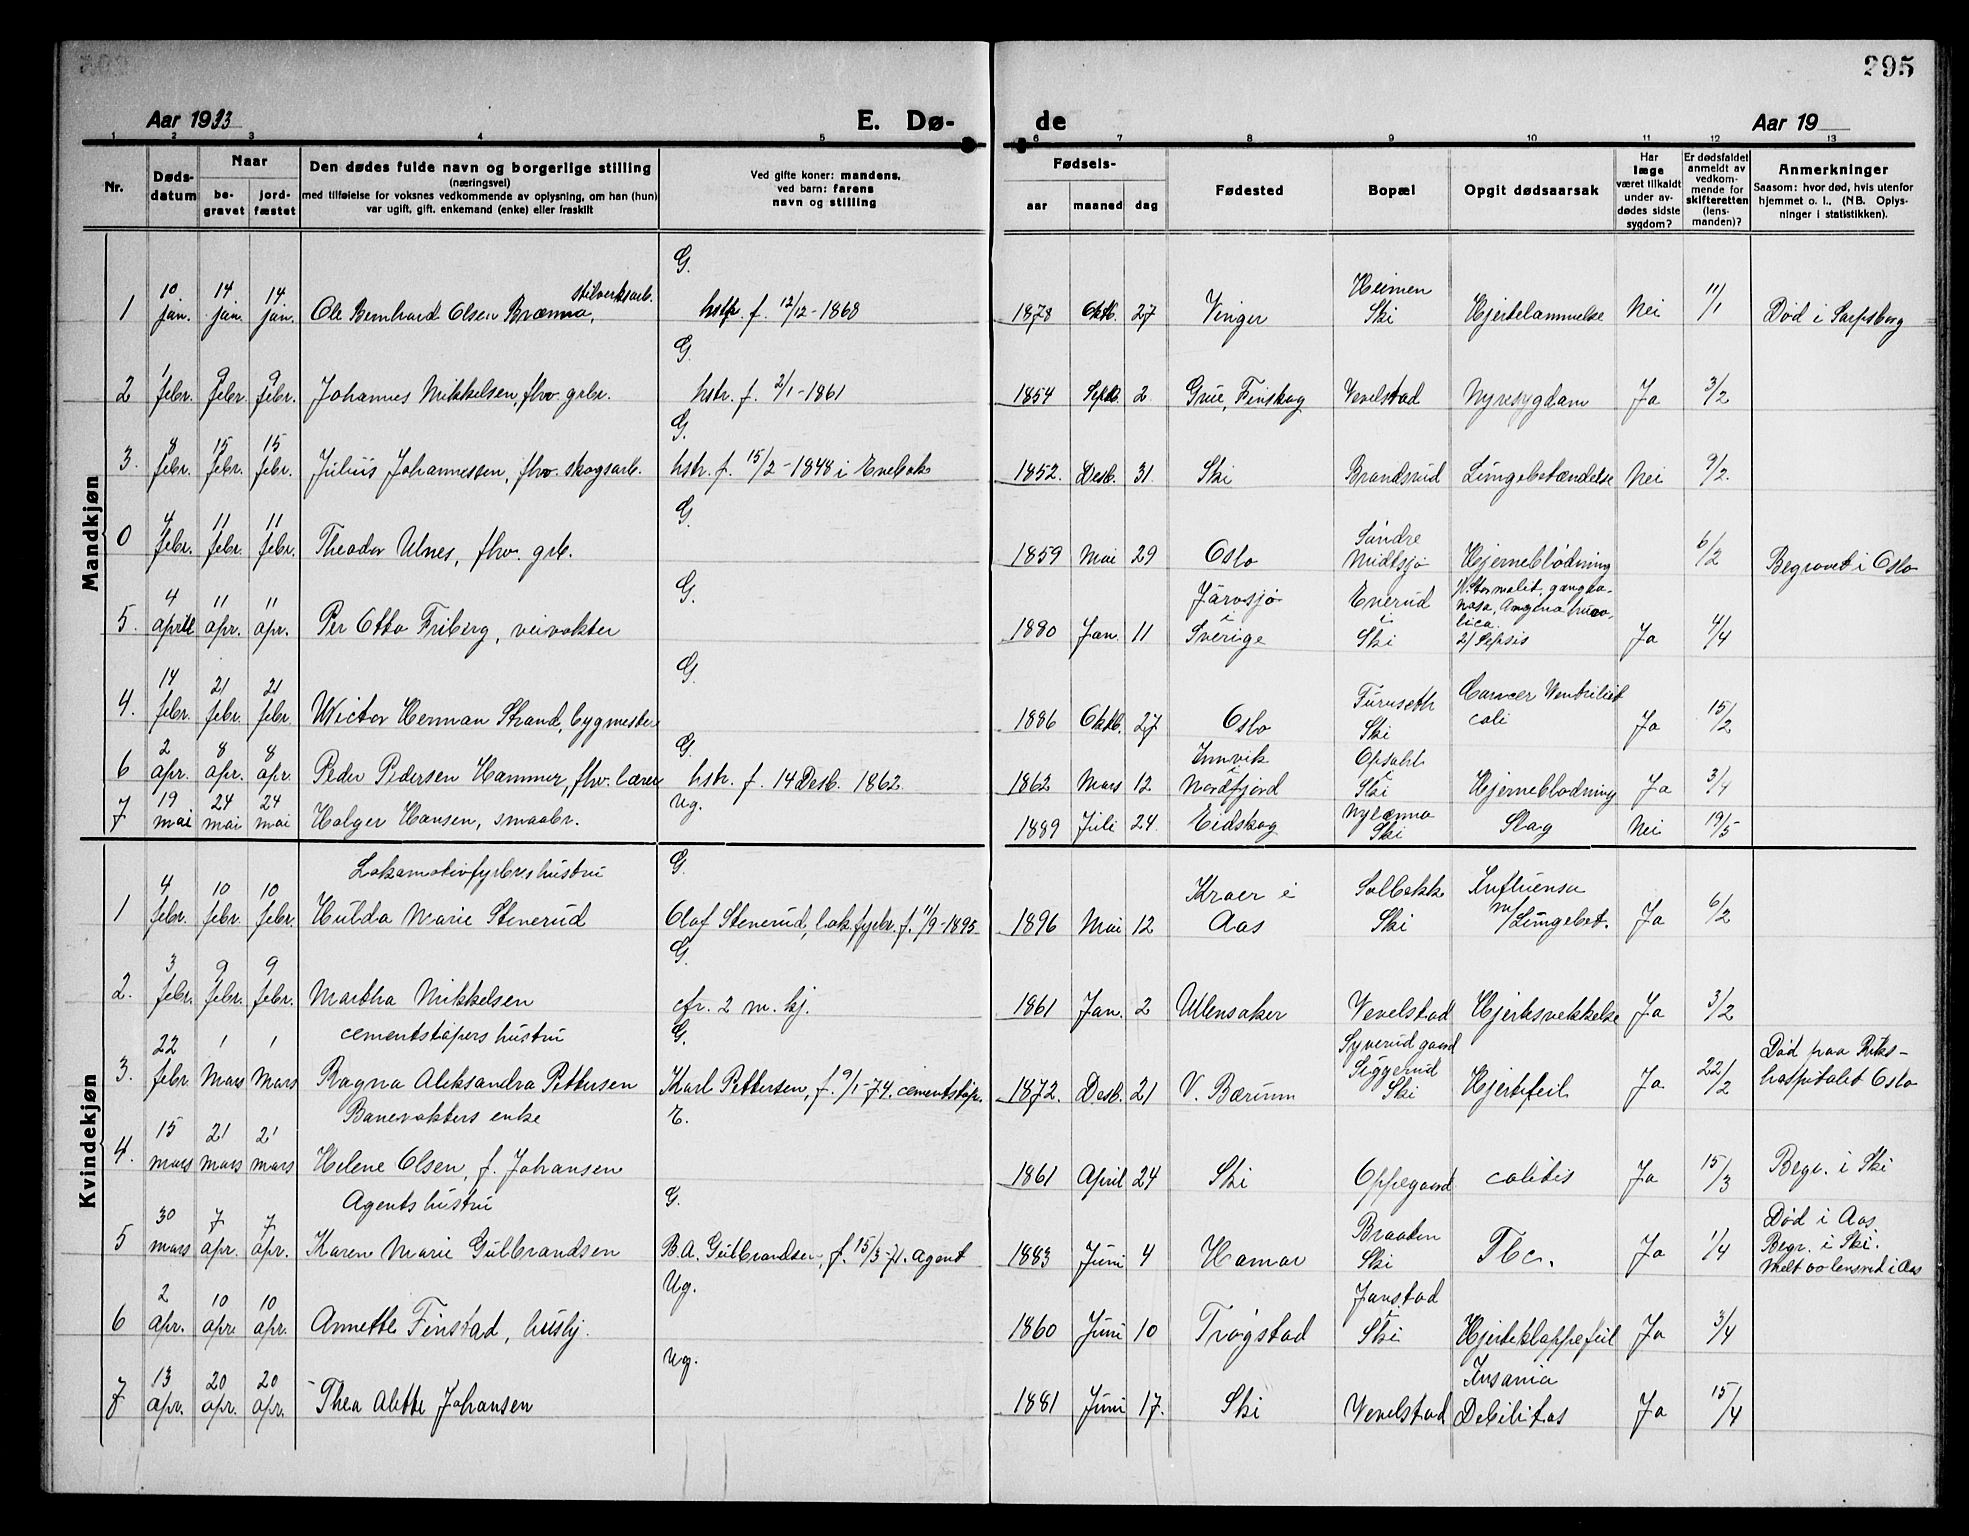 295
Aar 1933
E. Dø-
de
Aar 19
1 2 3 4 5 6 7 8 9 10 11 12 13
Nr.
Døds-
datum
Naar
be-
gravet
jord-
fæstet
Den dødes fulde navn og borgerlige stilling
(næringsvei)
med tilføielse for voksnes vedkommende av oplysning, om han (hun)
var ugift, gift, enkemand (enke) eller fraskilt
Ved gifte koner: mandens,
ved barn: farens
navn og stilling
Fødsels-
aar
maaned
dag
Fødested
Bopæl
Opgit dødsaarsak
Har
læge
været tilkaldt
under av-
dødes sidste
sygdom?
Er dødsfaldet
anmeldt av
vedkom-
mende for
skifteretten
(lens-
manden)?
Anmerkninger
Saasom: hvor død, hvis utenfor
hjemmet o. l., (NB. Oplys-
ninger i statistikken).
Mandkjøn
G.
10 14 14 stilverksarb. Heimen 11/1
1 jan. jan. jan. Ole Bernhard Olsen Brænna, hstr. f. 12/12-1868 1878 Oktb. 27 Vinger Ski Hjertelammelse Nei Død i Sarpsborg
G.
1 9 9
2 febr. febr. febr. Johannes Mikkelsen, fhv. grbr. hstr. f. 2/1-1861 1854 Septb. 2 Grue, Finskog Vevelstad Nyresygdam Ja 3/2
G.
8 15 15
3. febr. febr. febr. Julius Johannessen, fhv. skogsarb. hstr. f. 15/2-1848 i Enebak 1852. Desb. 31. Ski Brandsrud Lungebetændelse Nei 9/2.
G.
4 11 11 Søndre
0 febr. febr. febr. Theodor Ulnes, fhv. grb. 1859 Mai 29 Oslo Midtsjø Hjerneblødning 6/2 Begravet i Oslo
G.
4 11 11 Järvsjø i Enerud i 1/ Stomatit, gangræ-
nosa, Angina
5. april apr. apr. Per Otto Friberg, veivokter 1880 Jan. 11 Sverige Ski 2/ Sepsis Ja 4/4
G.
14 21 21 Furuseth Cancer Ventriculi et
4. febr. febr. febr. Wictor Herman Strand, bygmester 1886 Oktb. 27 Oslo Ski coli Ja 15/2
G.
2 8 8 Innvik i Opsahl i
6 apr. apr. apr. Peder Pedersen Hammer, fhv. lærer hstr. f. 14 Desb. 1862 1862 Mars 12 Nordfjord Ski Hjerneblødning Ja 3/4
ug.
19 24 24 Nyrænna
7 mai mai mai Holger Hansen, smaabr. 1889 Juli 24. Eidskog Ski Slag Nei 19/5
Kvindekjøn
Lokomotivfyrbøs hustru G.
4 10 10 Kraer i Solbakk Influensa
1 febr. febr. febr. Hulda Marie Stenerud Olaf Stenerud, lok.fyrbr. f. 11/9-1895 1896 Mai 12 Aas Ski m/Lungebet. Ja 6/2
G.
3 9 9
2. febr. febr. febr. Martha Mikkelsen cfr. 2 m. kj. 1861 Jan. 2 Ullensaker Vevelstad Hjertesvekkelse Ja 3/2
cementstøpers hustru G. Syverud gaard
22 1 1 Siggerud Død paa Riks-
3. febr Mars Mars Ragna Aleksandra Pettersen Karl Pettersen, f. 9/1-74. cementstøp. 1872. Desb. 21 V. Bærum Ski Hjertefeil Ja 22/2 hospitalet Oslo
Banevokters enke E.
15 21 21
4. mars mars mars Helene Olsen, f. Johansen 1861 April 24 Ski Oppegaard colitis Ja 15/3 Begr. i Ski
Agents hustru G.
30 7 7 Braaten Død i Aas.
5 mars apr. apr. Karen Marie Gulbrandsen B.A. Gulbrandsen, f. 15/3-71. Agent 1883 Juni 4 Hamar Ski Tbc. Ja 1/4 Begr. i Ski.
Ug.
2 10 10
6 apr. apr. apr. Annette Finstad, hushj. 1860 Juni 10 Trøgstad Ski Hjerteklappefeil Ja 3/4
Ug.
13 20 20 Insania
7 apr. apr. apr. Thea Alette Johansen 1881 Juni 17. Ski Vevelstad Debilitas Ja 15/4